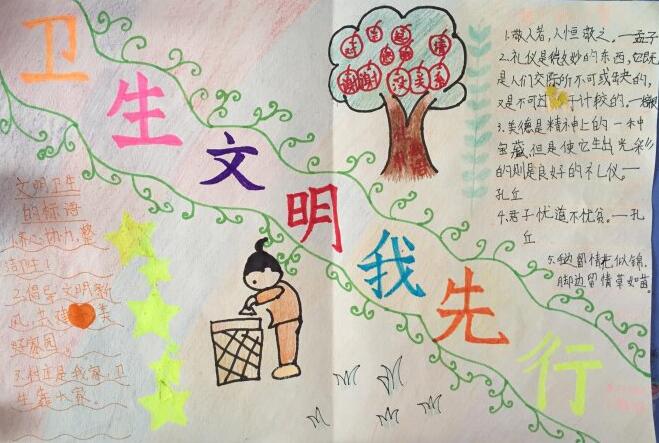 卫生文明我先行
文明卫生
的标语
1.齐心协力,整
洁卫生!
2.倡导文明新
风,共建美
好家园。
3.村庄是我家,卫
生靠大家。
谢谢
没关系
1.敬人者,人恒敬之。—孟子
2.礼仪是微妙的东西,它既
是人们交际所不可或缺的,
又是不可过于计较的。—
3.美德是精神上的一种
宝藏,但是使它生出光彩
的则是良好的礼仪。—
孔丘
4.君子忧道不忧贫。—孔
丘
5.
脚边留情草如茵。